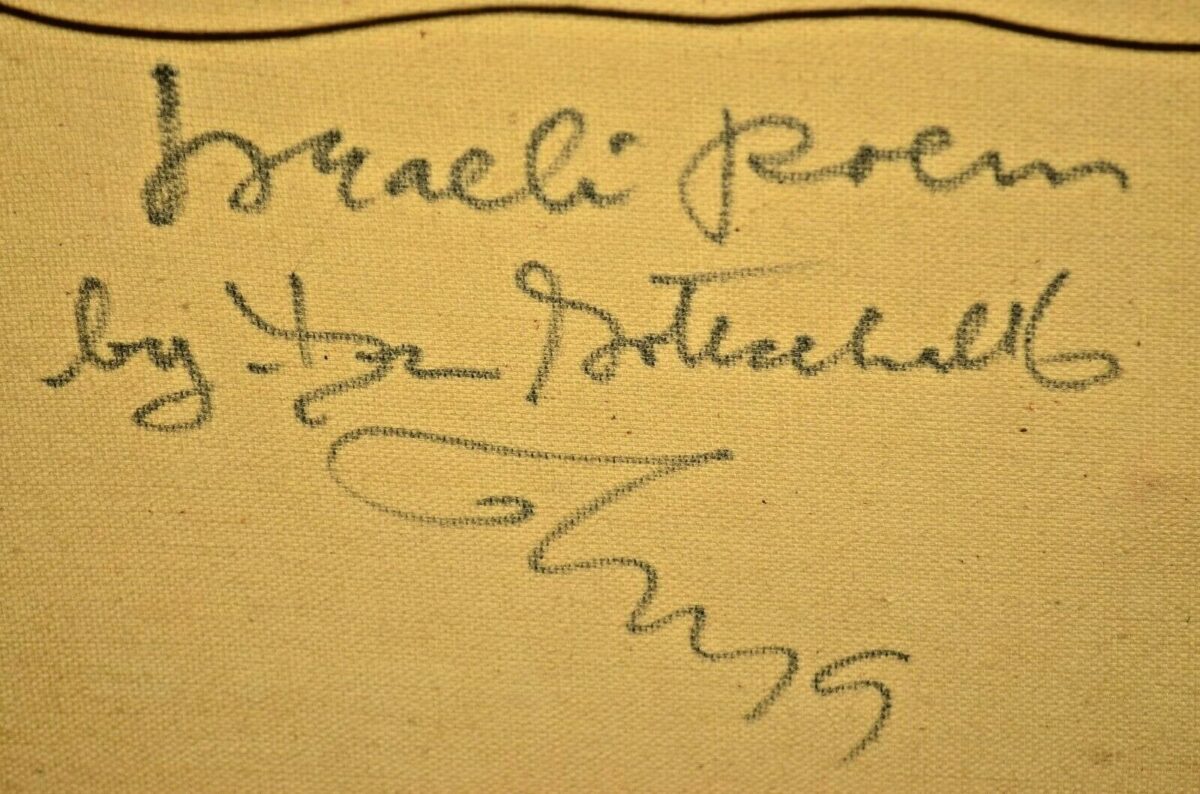 Israeli Poem
by Dr Gottschalk